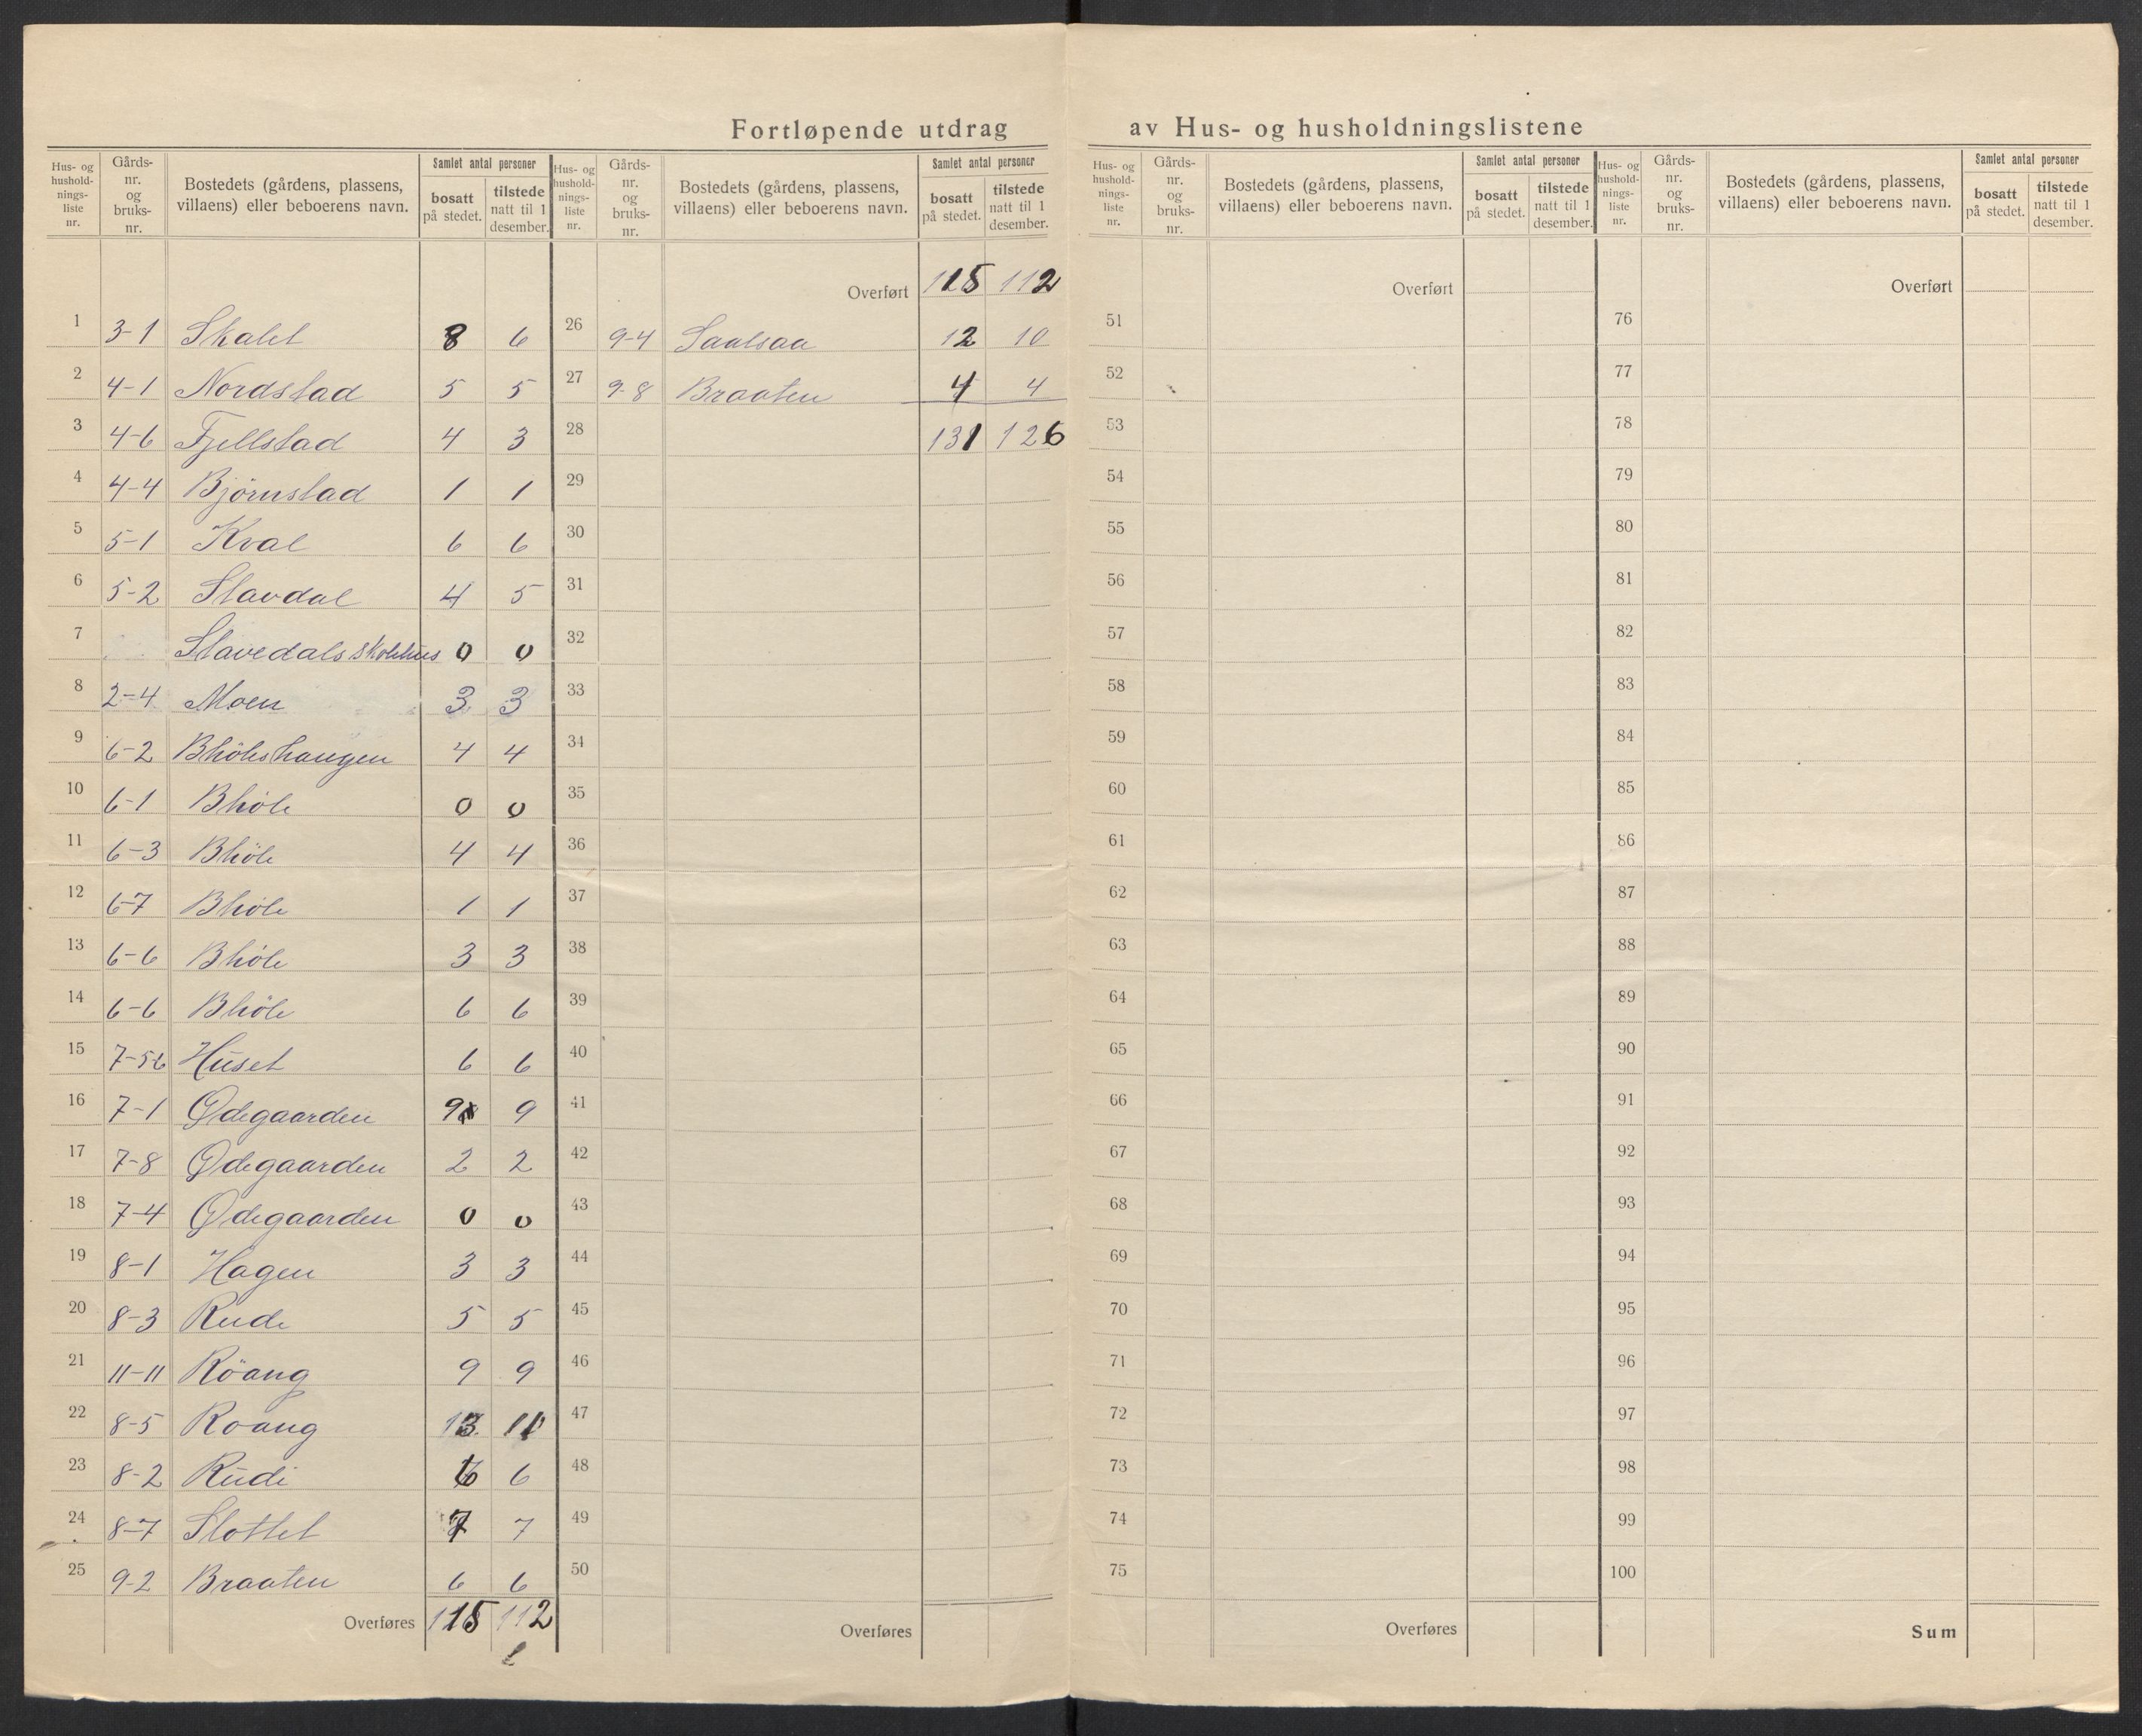 Fortløpende utdrag av Hus- og husholdningslistene
Hus- og hushold- nings- liste nr. | Gårds- nr. og bruks- nr. | Bostedets (gårdens, plassens, villaens) eller beboerens navn. | Samlet antal personer | bosatt på stedet. | tilstede natt til 1 desember.
1 3-1 Skalet 8 6
2 4-1 Nordstad 5 5
3 4-6 Fjellstad 4 3
4 4-4 Björnstad 1 1
5 5-1 Kval 6 6
6 5-2 Stavdal 4 5
7 Stavedals skolehus 0 0
8 2-4 Moen 3 3
9 6-2 Bhöleshaugen 4 4
10 6-1 Bhöle 0 0
11 6-3 Bhöle 4 4
12 6-7 Bhöle 1 1
13 6-6 Bhöle 3 3
14 6-6 Bhöle 6 6
15 7-56 Huset 6 6
16 7-1 Ødegaarden 9 9
17 7-8 Ødegaarden 2 2
18 7-4 Ødegaarden 0 0
19 8-1 Hagen 3 3
20 8-3 Rude 5 5
21 11-11 Röang 9 9
22 8-5 Roang 13 11
23 8-2 Rudi 6 6
24 8-7 Slottet 7 7
25 9-2 Braaten 6 6
Overføres 115 112
Hus- og hushold- nings- liste nr. | Gårds- nr. og bruks- nr. | Bostedets (gårdens, plassens, villaens) eller beboerens navn. | Samlet antal personer | bosatt på stedet. | tilstede natt til 1 desember.
Overført 115 112
26 9-4 Saalsaa 12 10
27 9-8 Braaten 4 4
28 131 126
29
30
31
32
33
34
35
36
37
38
39
40
41
42
43
44
45
46
47
48
49
50
Overføres
Hus- og hushold- nings- liste nr. | Gårds- nr. og bruks- nr. | Bostedets (gårdens, plassens, villaens) eller beboerens navn. | Samlet antal personer | bosatt på stedet. | tilstede natt til 1 desember.
Overført
51
52
53
54
55
56
57
58
59
60
61
62
63
64
65
66
67
68
69
70
71
72
73
74
75
Overføres
Hus- og hushold- nings- liste nr. | Gårds- nr. og bruks- nr. | Bostedets (gårdens, plassens, villaens) eller beboerens navn. | Samlet antal personer | bosatt på stedet. | tilstede natt til 1 desember.
Overført
76
77
78
79
80
81
82
83
84
85
86
87
88
89
90
91
92
93
94
95
96
97
98
99
100
Sum